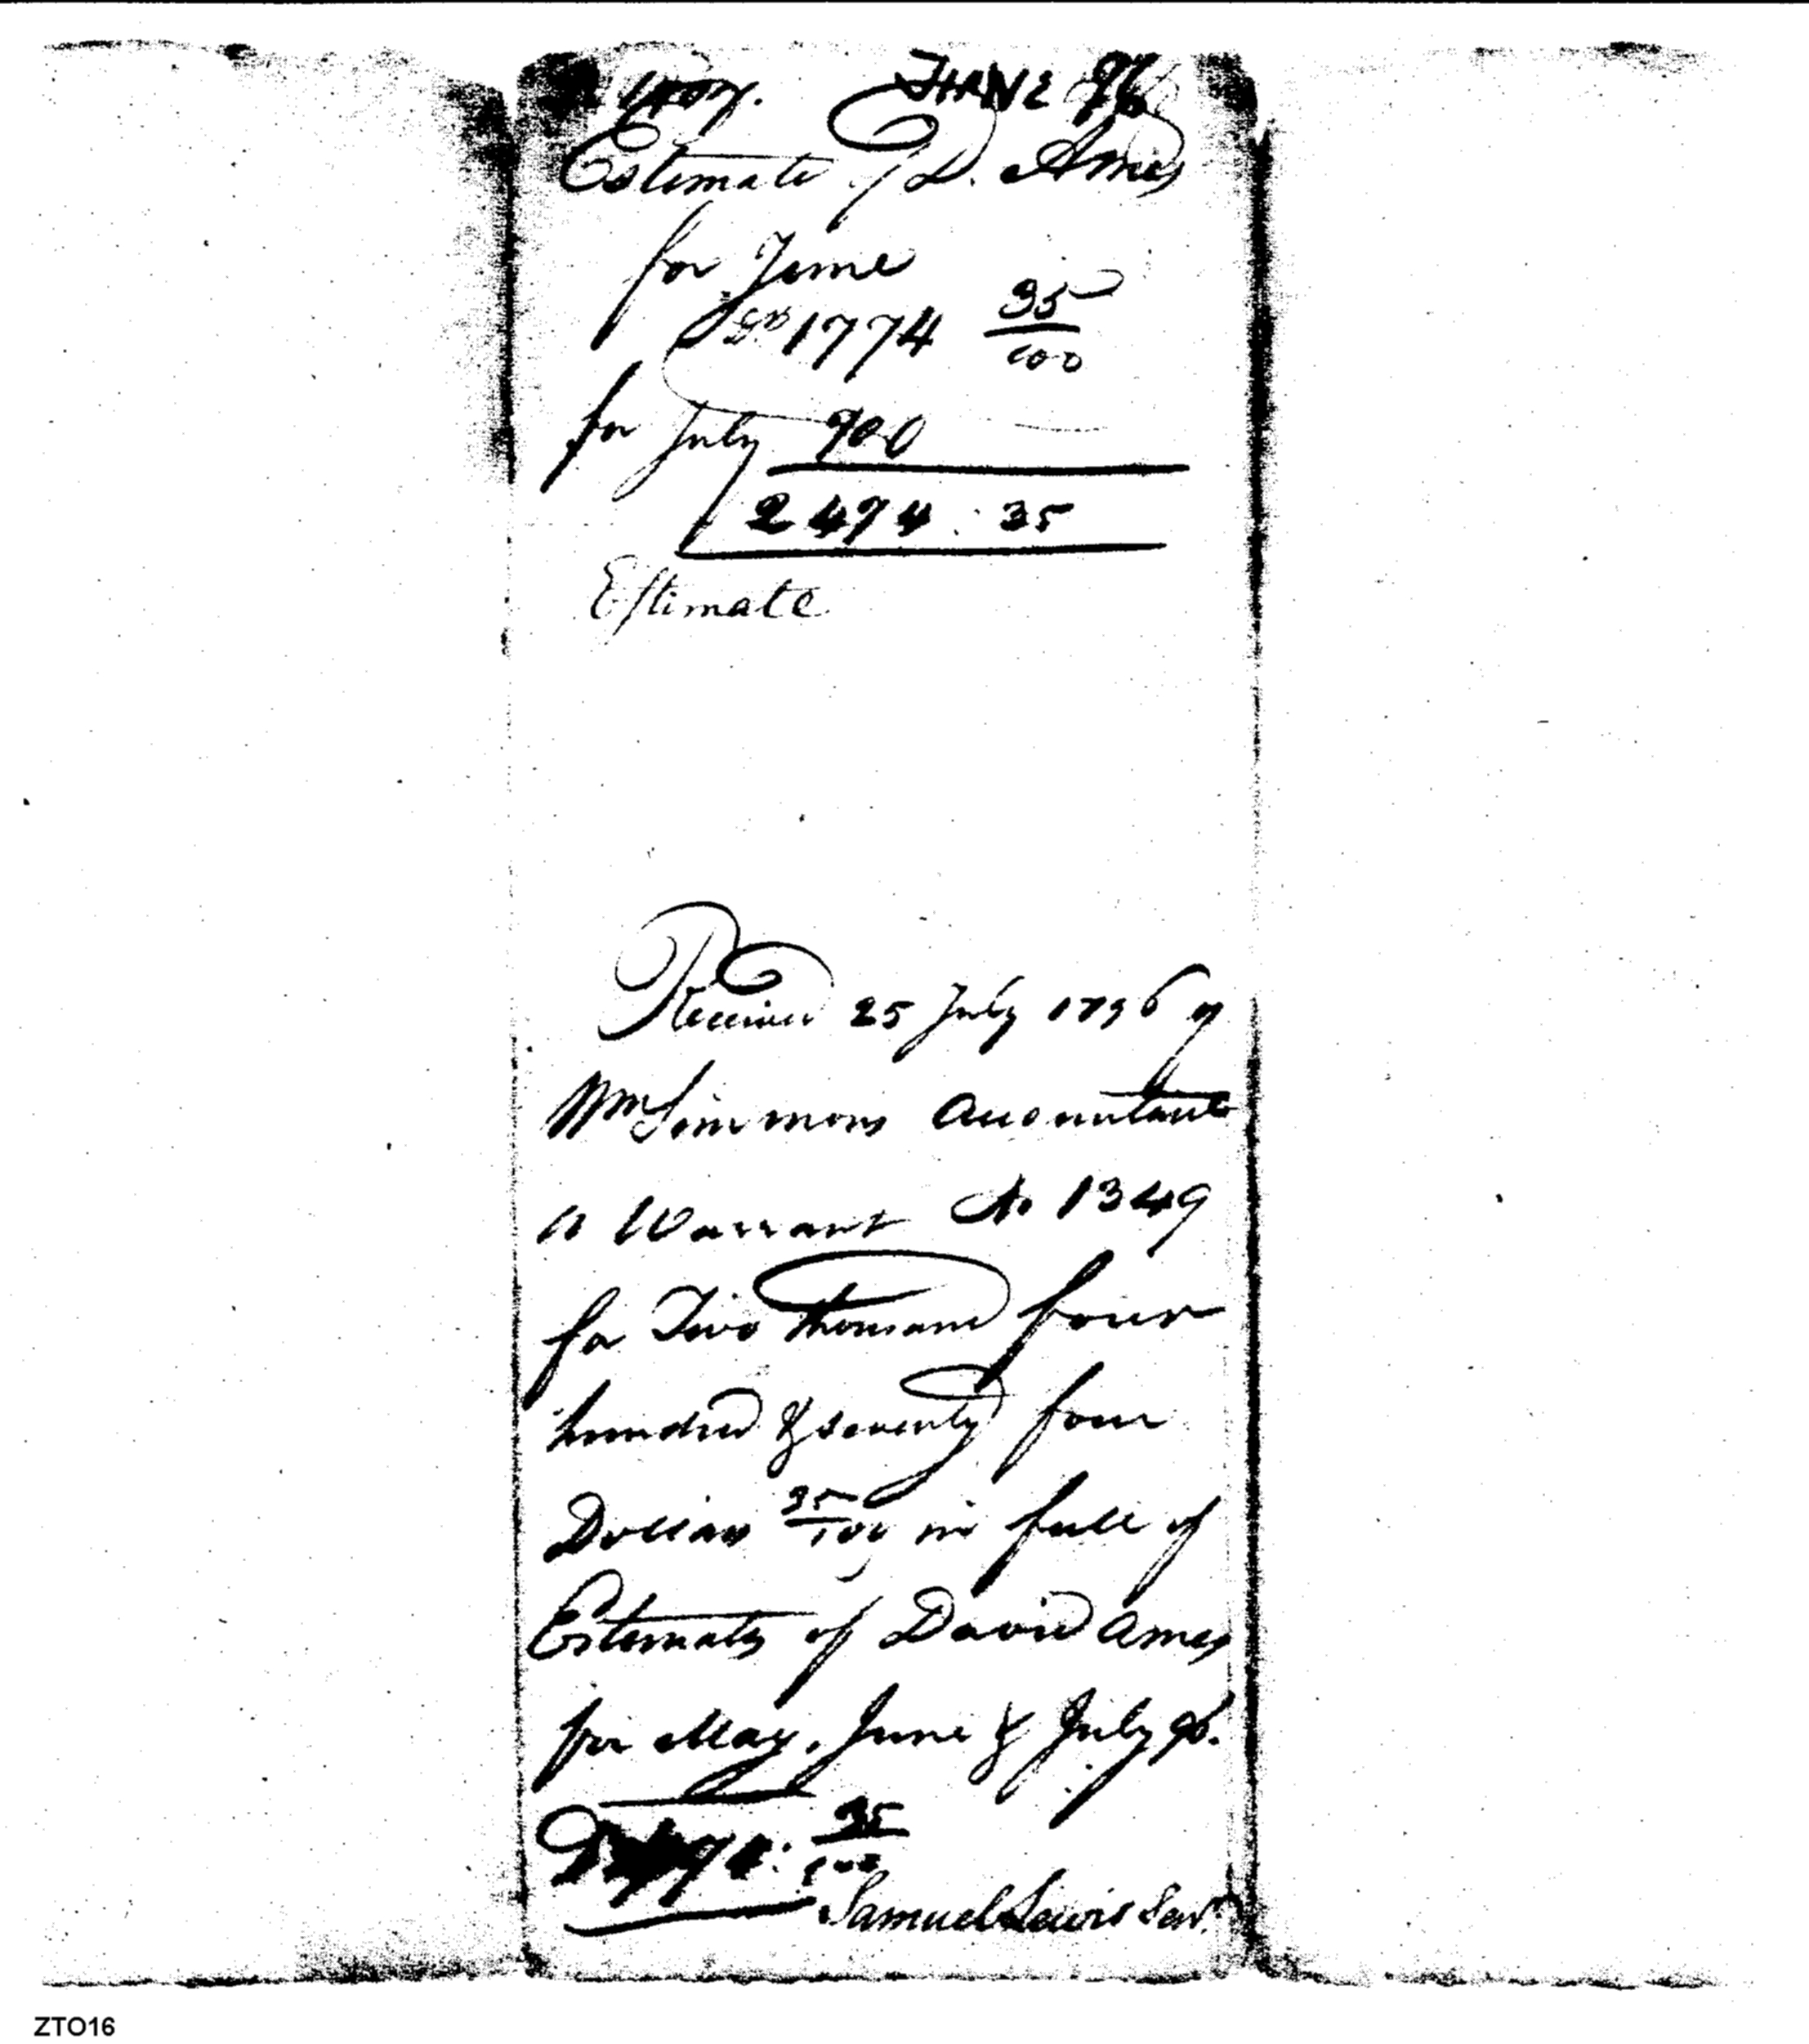 JUNE 96
Estimate of D. Ames
for June
1774 35/100
for July 700
2474 : 35
Estimate
Received 25 July 1796 of
Wm Simmons Accountant
a Warrant No 1349
for Two thousand four
hundred & seventy four
Dollars 35/100 in full of
Estimates of David Ames
for May, June & July 96.
D 2474: 35/100
Samuel Lewis Senr.
ZTO16